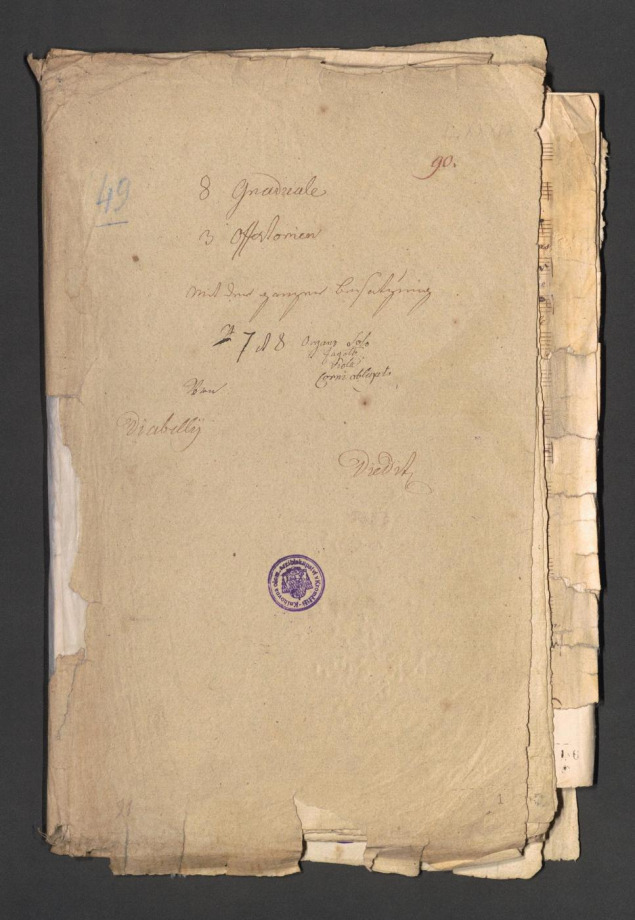 90.
49
8 Graduale
3 Offertorien
mit der ganzen Besetzung
7 et 8 Organo Solo
Fagoto
Viole
Corni obligat
Von
Diabelly
1